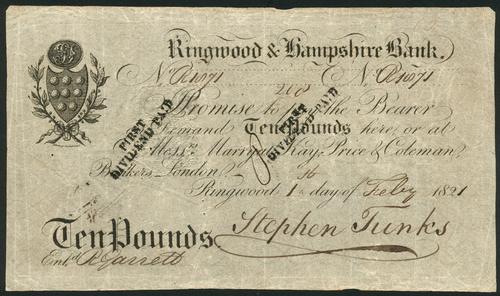 Ringwood & Hampshire Bank.
No. No.
Promise to pay the Bearer
on Demand Ten Pounds here, or at
Messrs. Marryat, Kay, Price & Coleman,
Bankers London
Ringwood 1st day of Feby 1821
Stephen Tunks
Ten Pounds
Entd. R Garrett
FIRST
DIVIDEND PAID
FIRST
DIVIDEND PAID